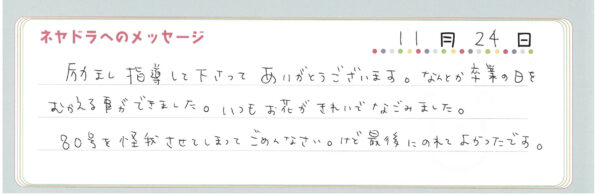 ネヤドラへのメッセージ 11月24日
励まし指導して下さって ありがとうございます。なんとか卒業の日を
むかえる事ができました。いつもお花がきれいでなごみました。
80号を怪我させてしまってごめんなさい。けど最後にのれてよかったです。